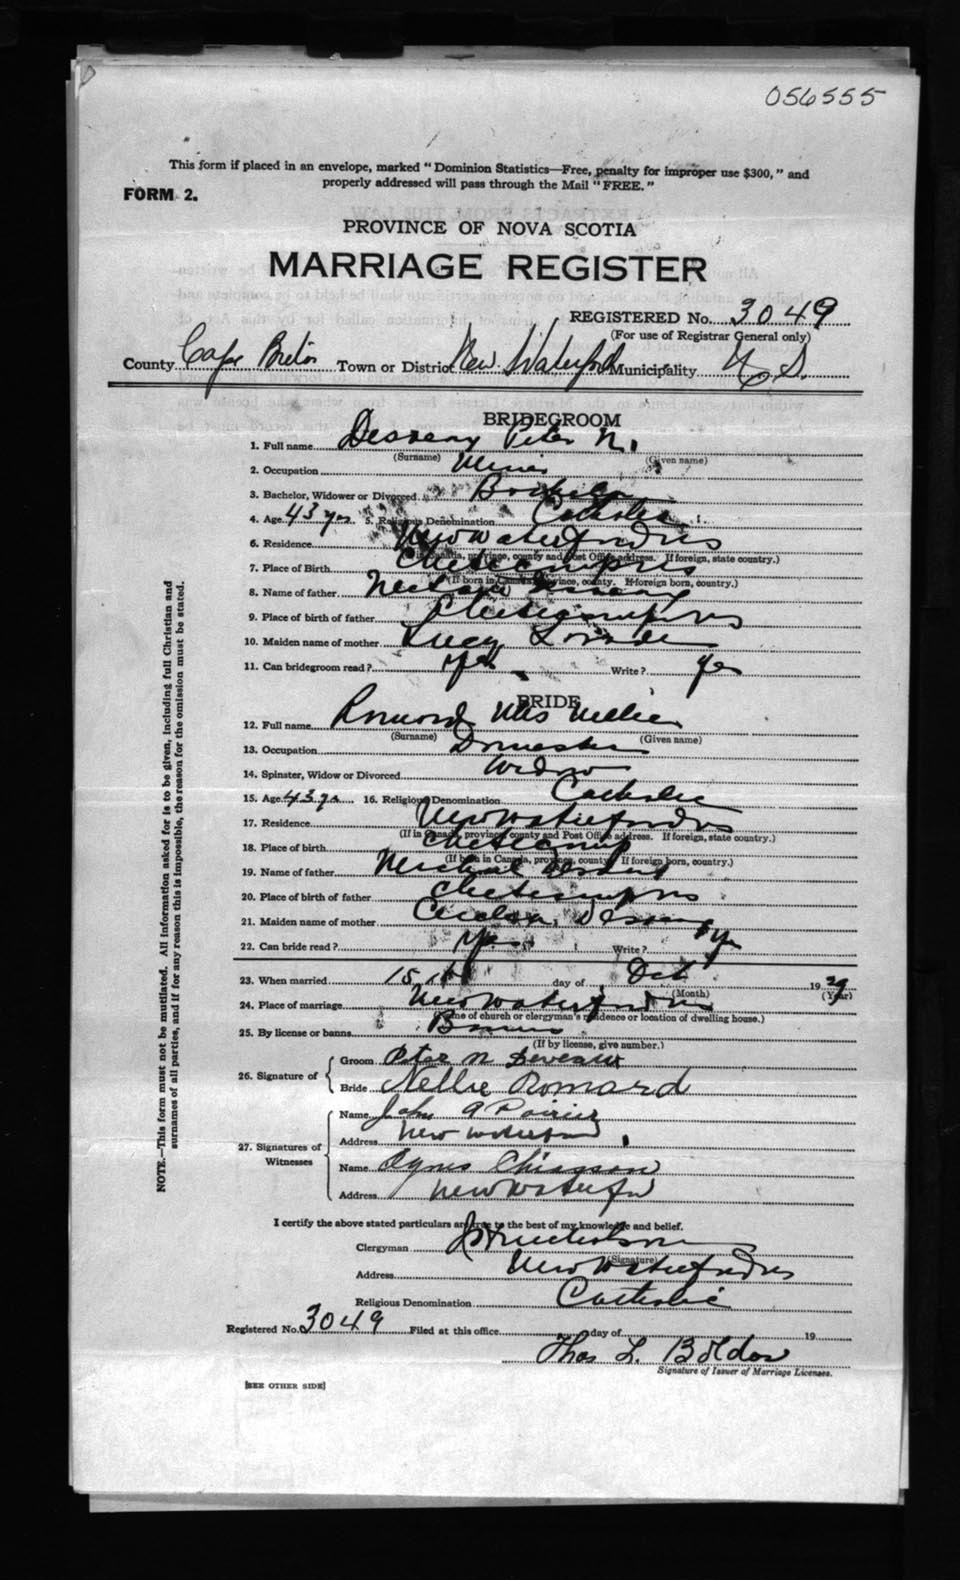 056555
This form if placed in an envelope, marked "Dominion Statistics—Free, penalty for improper use $300," and
properly addressed will pass through the Mail "FREE."
FORM 2.
PROVINCE OF NOVA SCOTIA
MARRIAGE REGISTER
REGISTERED No. 3049
(For use of Registrar General only)
County Cape Breton Town or District New Waterford Municipality N.S.
BRIDEGROOM
1. Full name Desveaux Peter N.
(Surname) (Given name)
2. Occupation Miner
3. Bachelor, Widower or Divorced Bachelor
4. Age 43 yrs 5. Religious Denomination Catholic
6. Residence New Waterford NS
(If in Canada, province, county and Post Office address. If foreign, state country.)
7. Place of Birth Cheticamp NS
(If born in Canada, province, county. If foreign born, country.)
8. Name of father
9. Place of birth of father Cheticamp NS
10. Maiden name of mother Lucy
11. Can bridegroom read? Yes Write? Yes
BRIDE
12. Full name Romard Mrs Nellie
(Surname) (Given name)
13. Occupation Domestic
14. Spinster, Widow or Divorced Widow
15. Age 43 yrs 16. Religious Denomination Catholic
17. Residence New Waterford NS
(If in Canada, province, county and Post Office address. If foreign, state country.)
18. Place of birth Cheticamp
(If born in Canada, province, county. If foreign born, country.)
19. Name of father Michael
20. Place of birth of father Cheticamp NS
21. Maiden name of mother
22. Can bride read? Yes Write? Yes
23. When married 15th day of Oct 1929
(Month) (Year)
24. Place of marriage New Waterford NS
(Name of church or clergyman's residence or location of dwelling house.)
25. By license or banns Banns
(If by license, give number.)
26. Signature of
Groom Peter N Deveaux
Bride Nellie Romard
27. Signatures of Witnesses
Name John A Poirier
Address New Waterford
Name Agnes Chiasson
Address New Waterford
I certify the above stated particulars are true to the best of my knowledge and belief.
Clergyman
(Signature)
Address New Waterford NS
Religious Denomination Catholic
Registered No. 3049 Filed at this office day of 19
Thos L.
Signature of Issuer of Marriage Licenses.
[SEE OTHER SIDE]
NOTE.—This form must not be mutilated. All information asked for is to be given, including full Christian and
surnames of all parties, and if for any reason this is impossible, the reason for the omission must be stated.